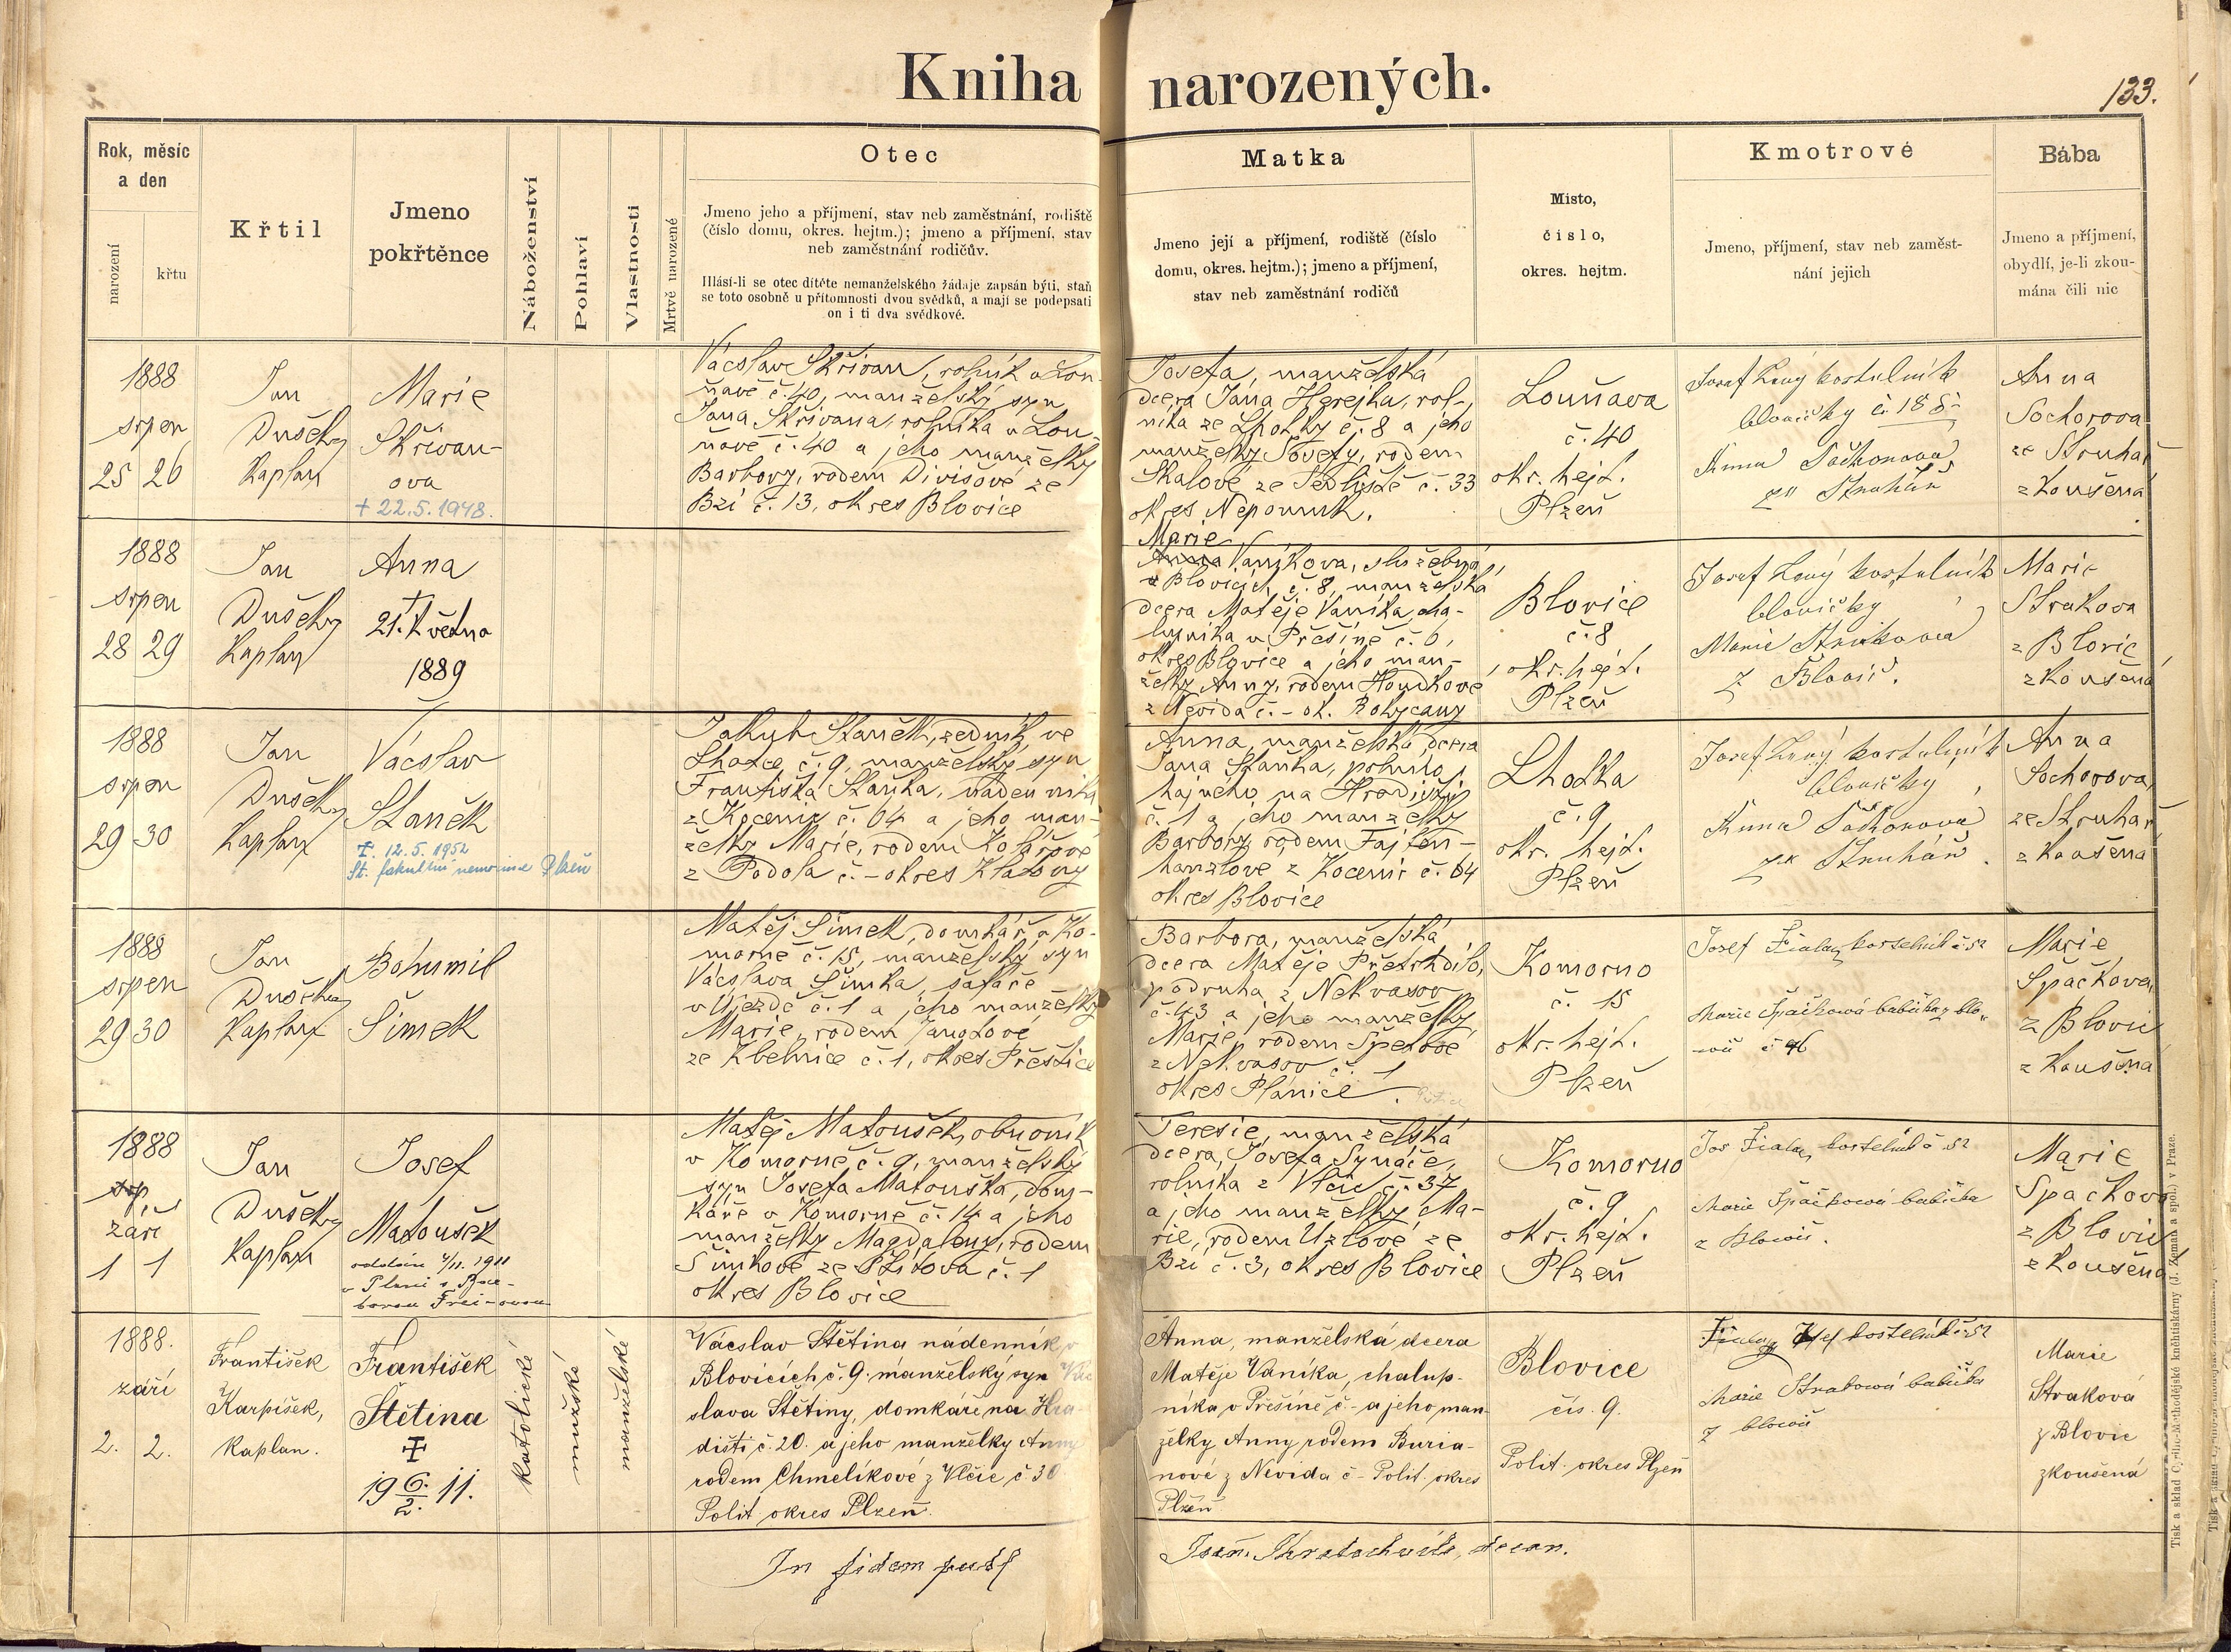 Kniha narozených.
133.
Rok, měsíc
a den
narození
křtu
Křtil
Jmeno
pokřtěnce
Náboženství
Pohlaví
Vlastnosti
Mrtvě narozené
Otec
Jmeno jeho a příjmení, stav neb zaměstnání, rodiště
(číslo domu, okres. hejtm.); jmeno a příjmení, stav
neb zaměstnání rodičův.
Hlásí-li se otec dítěte nemanželského žádaje zapsán býti, staň
se toto osobně u přítomnosti dvou svědků, a mají se podepsati
on i ti dva svědkové.
Matka
Jmeno její a příjmení, rodiště (číslo
domu, okres. hejtm.); jmeno a příjmení,
stav neb zaměstnání rodičů
Misto,
čislo,
okres. hejtm.
Kmotrové
Jmeno, příjmení, stav neb zaměst-
nání jejich
Bába
Jmeno a příjmení,
obydlí, je-li zkou-
mána čili nic
1888
srpen
25 26
Jan
Dušek
Kaplan
Marie
Skřivan-
ova
+ 22.5.1948.
Vácslav Skřivan, rolník v Lou-
ňavě č. 40, manželský syn
Jana Skřivana, rolníka v Lou-
ňavě č. 40 a jeho manželky
Barbory, rodem Divišové ze
Bzí č. 13, okres Blovice
Josefa, manželská
dcera Jana Herejka, rol-
níka ze Lhotky č. 8 a jeho
manželky Josefy, rodem
Skalové ze Sedliště č. 33
okres Nepomuk.
Louňava
č. 40
okr. hejt.
Plzeň
Josef Levý kostelník
blovický č. 188
Anna
ze Struhař
Anna
Sochorova
ze Struhař
zkoušená
1888
srpen
28 29
Jan
Dušek
Kaplan
Anna
+
21. Května
1889
Marie
Vaníkova, služebná
v Blovicích č. 8, manželská
dcera Matěje Vaníka, cha-
lupníka v Přešíně č. 6,
okres Blovice a jeho man-
želky Anny, rodem Houdkové
z Nevida č. - ok. Rokycany
Blovice
č. 8
okr. hejt.
Plzeň
Josef Levý kostelník
blovický
Marie Strakova
z Blovic.
Marie
Strakova
z Blovic
zkoušena
1888
srpen
29 30
Jan
Dušek
Kaplan
Vácslav
Staněk
†. 12.5. 1952
St. fakultní nemocnice Plzeň
Jakub Staněk, zedník ve
Lhotce č. 9, manželský syn
Františka Staňka, nádeníka
z Kocenic č. 64 a jeho man-
želky Marie, rodem Kolářové
z Podola č. - okres Klatovy
Anna, manželská dcera
Jana Staňka,
hajného na Hradišti
č. 1 a jeho manželky
Barbory, rodem Fajfen-
hanzlove z Kocenic č. 64
okres Blovice
Lhotka
č. 9
okr. hejt.
Plzeň
Josef Levý kostelník
blovický
Anna
ze Struhař.
Anna
Sochorova
ze Struhař
zkoušena
1888
srpen
29 30
Jan
Dušek
Kaplan
Bohumil
Šimek
Matěj Šimek, domkář v Ko-
morně č. 15, manželský syn
Vácslava Šimka, šafáře
v Újezdě č. 1 a jeho manželky
Marie, rodem
ze Zbelnice č. 1, okres Přeštice
Barbora, manželská
dcera Matěje Přetrhdílo,
podruha z Nekvasov
č. 43 a jeho manželky,
Marie, rodem Špetové
z Nekvasov č. 1
okres Plánice.
Komorno
č. 15
okr. hejt.
Plzeň
Josef Fiala kostelník č 52
Marie Špačková babička z blo-
vic č 46
Marie
Špačkova
z Blovic
zkoušena
1888
září
1 1
Jan
Dušek
Kaplan
Josef
Matoušek
oddán 4/11. 1911
v Plzni s Bar-
borou
Matěj Matoušek, obuvník
v Komorně č. 9, manželský
syn Josefa Matouška, dom-
káře v Komorně č. 14 a jeho
manželky Magdaleny, rodem
Šimkové ze Ždírova č. 1
okres Blovice
Teresie, manželská
dcera, Josefa Synáče,
rolníka z Vlčic č. 37,
a jeho manželky Ma-
rie, rodem Uzlové ze
Bzí č. 3, okres Blovice
Komorno
č. 9
okr. hejt.
Plzeň
Jos Fiala, kostelník č 52
Marie Špačková babička
z Blovic.
Marie
Špačkova
z Blovic
zkoušena
1888.
září
2. 2.
František
Karpíšek,
Kaplan.
František
Štětina
†
19 6./2. 11.
katolické
mužské
manželské
Vácslav Štětina nádenník v
Blovicích č. 9. manželský syn Vác
slava Štětiny, domkáře na Hra
dišti č. 20. a jeho manželky Anny
rodem Chmelíkové z Vlčic č. 30
Polit. okres Plzeň.
Anna, manželská dcera
Matěje Vaníka, chalup-
níka v Přešíně č - a jeho man-
želky Anny rodem Buria-
nové z Nevida č - Polit. okres
Plzeň
Blovice
čís. 9.
Polit. okres Plzeň
Fiala Josef kostelník č 52
Marie Straková babička
z blovic
Marie
Straková
z Blovic
zkoušená
In fidem publ
Joan. Kratochvíle, decan.
Tisk a sklad Cyrillo-Methodějské knihtiskárny (J. Zeman a spol.) v Praze.